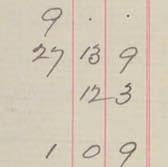 9 . .
27 13 9
12 3
1 0 9